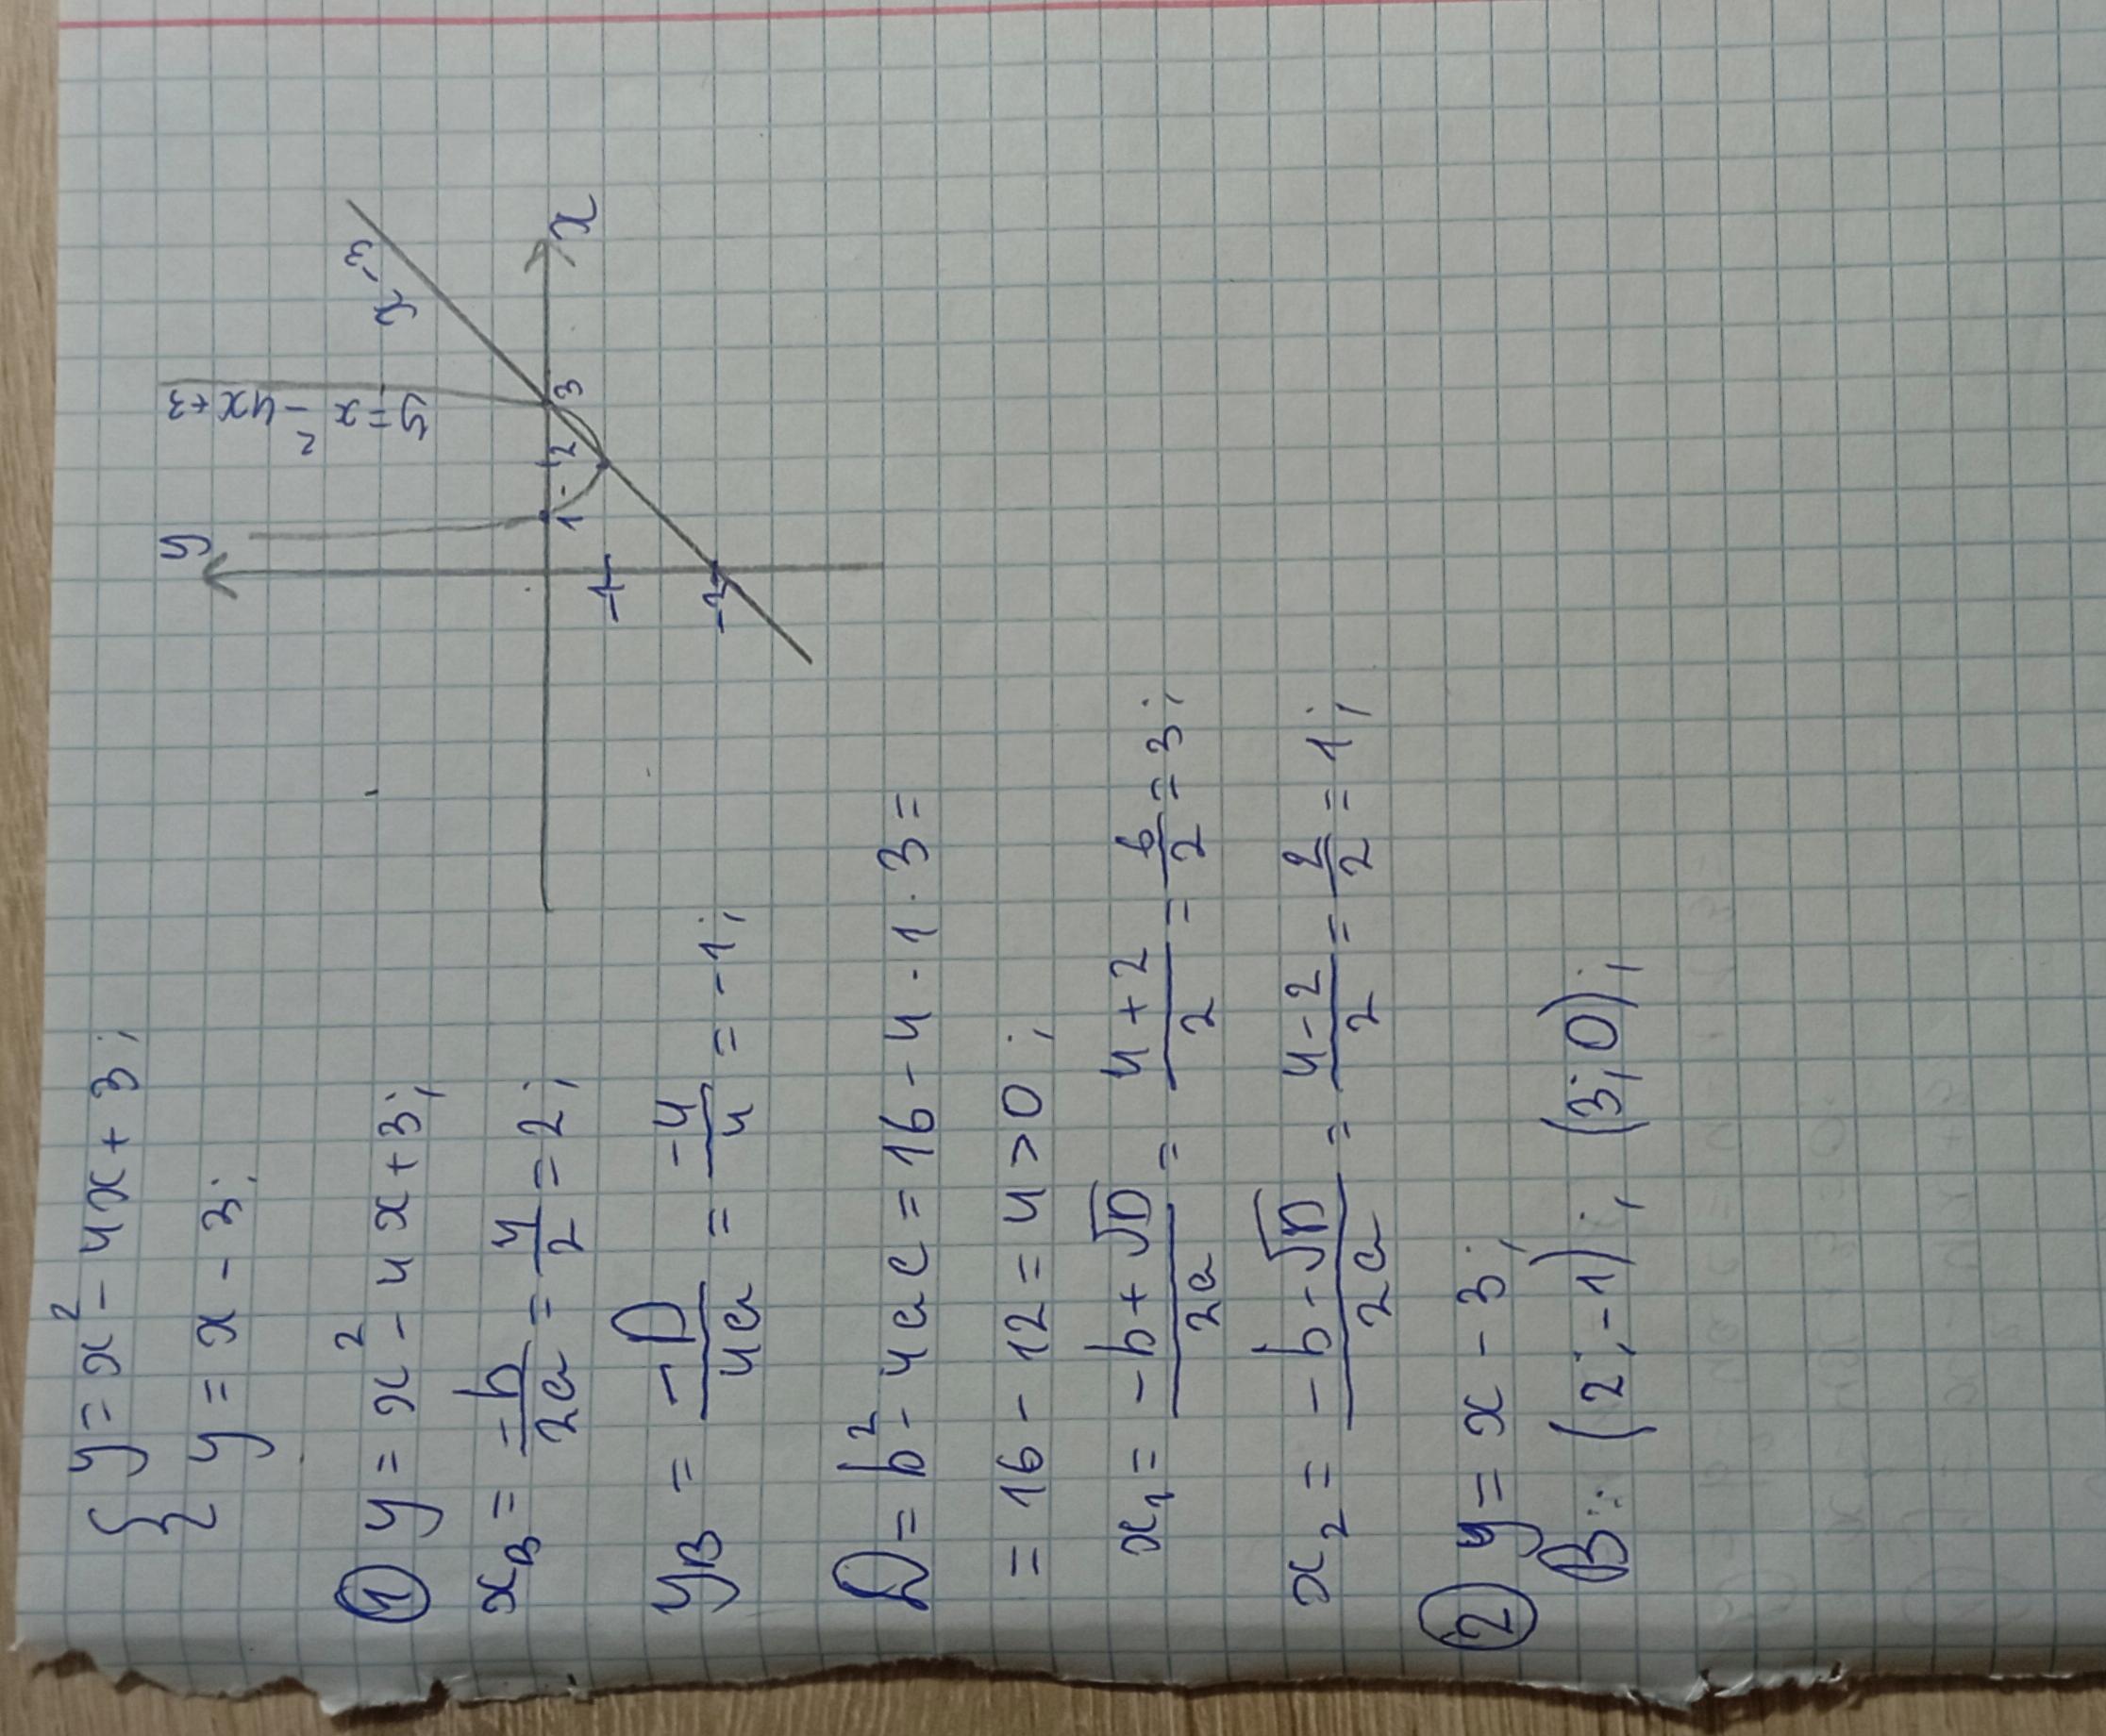 { y = x² - 4x + 3;
y = x - 3;
① y = x² - 4x + 3;
xв = -b/2a = 4/2 = 2;
yв = -D/4a = -4/4 = -1;
D = b² - 4ac = 16 - 4 · 1 · 3 =
= 16 - 12 = 4 > 0;
x₁ = -b + √D/2a = 4 + 2/2 = 6/2 = 3;
x₂ = -b - √D/2a = 4 - 2/2 = 2/2 = 1;
② y = x - 3;
В: (2; -1); (3; 0);
y
y = x² - 4x + 3
x - 3
x
1
2
3
-1
-3